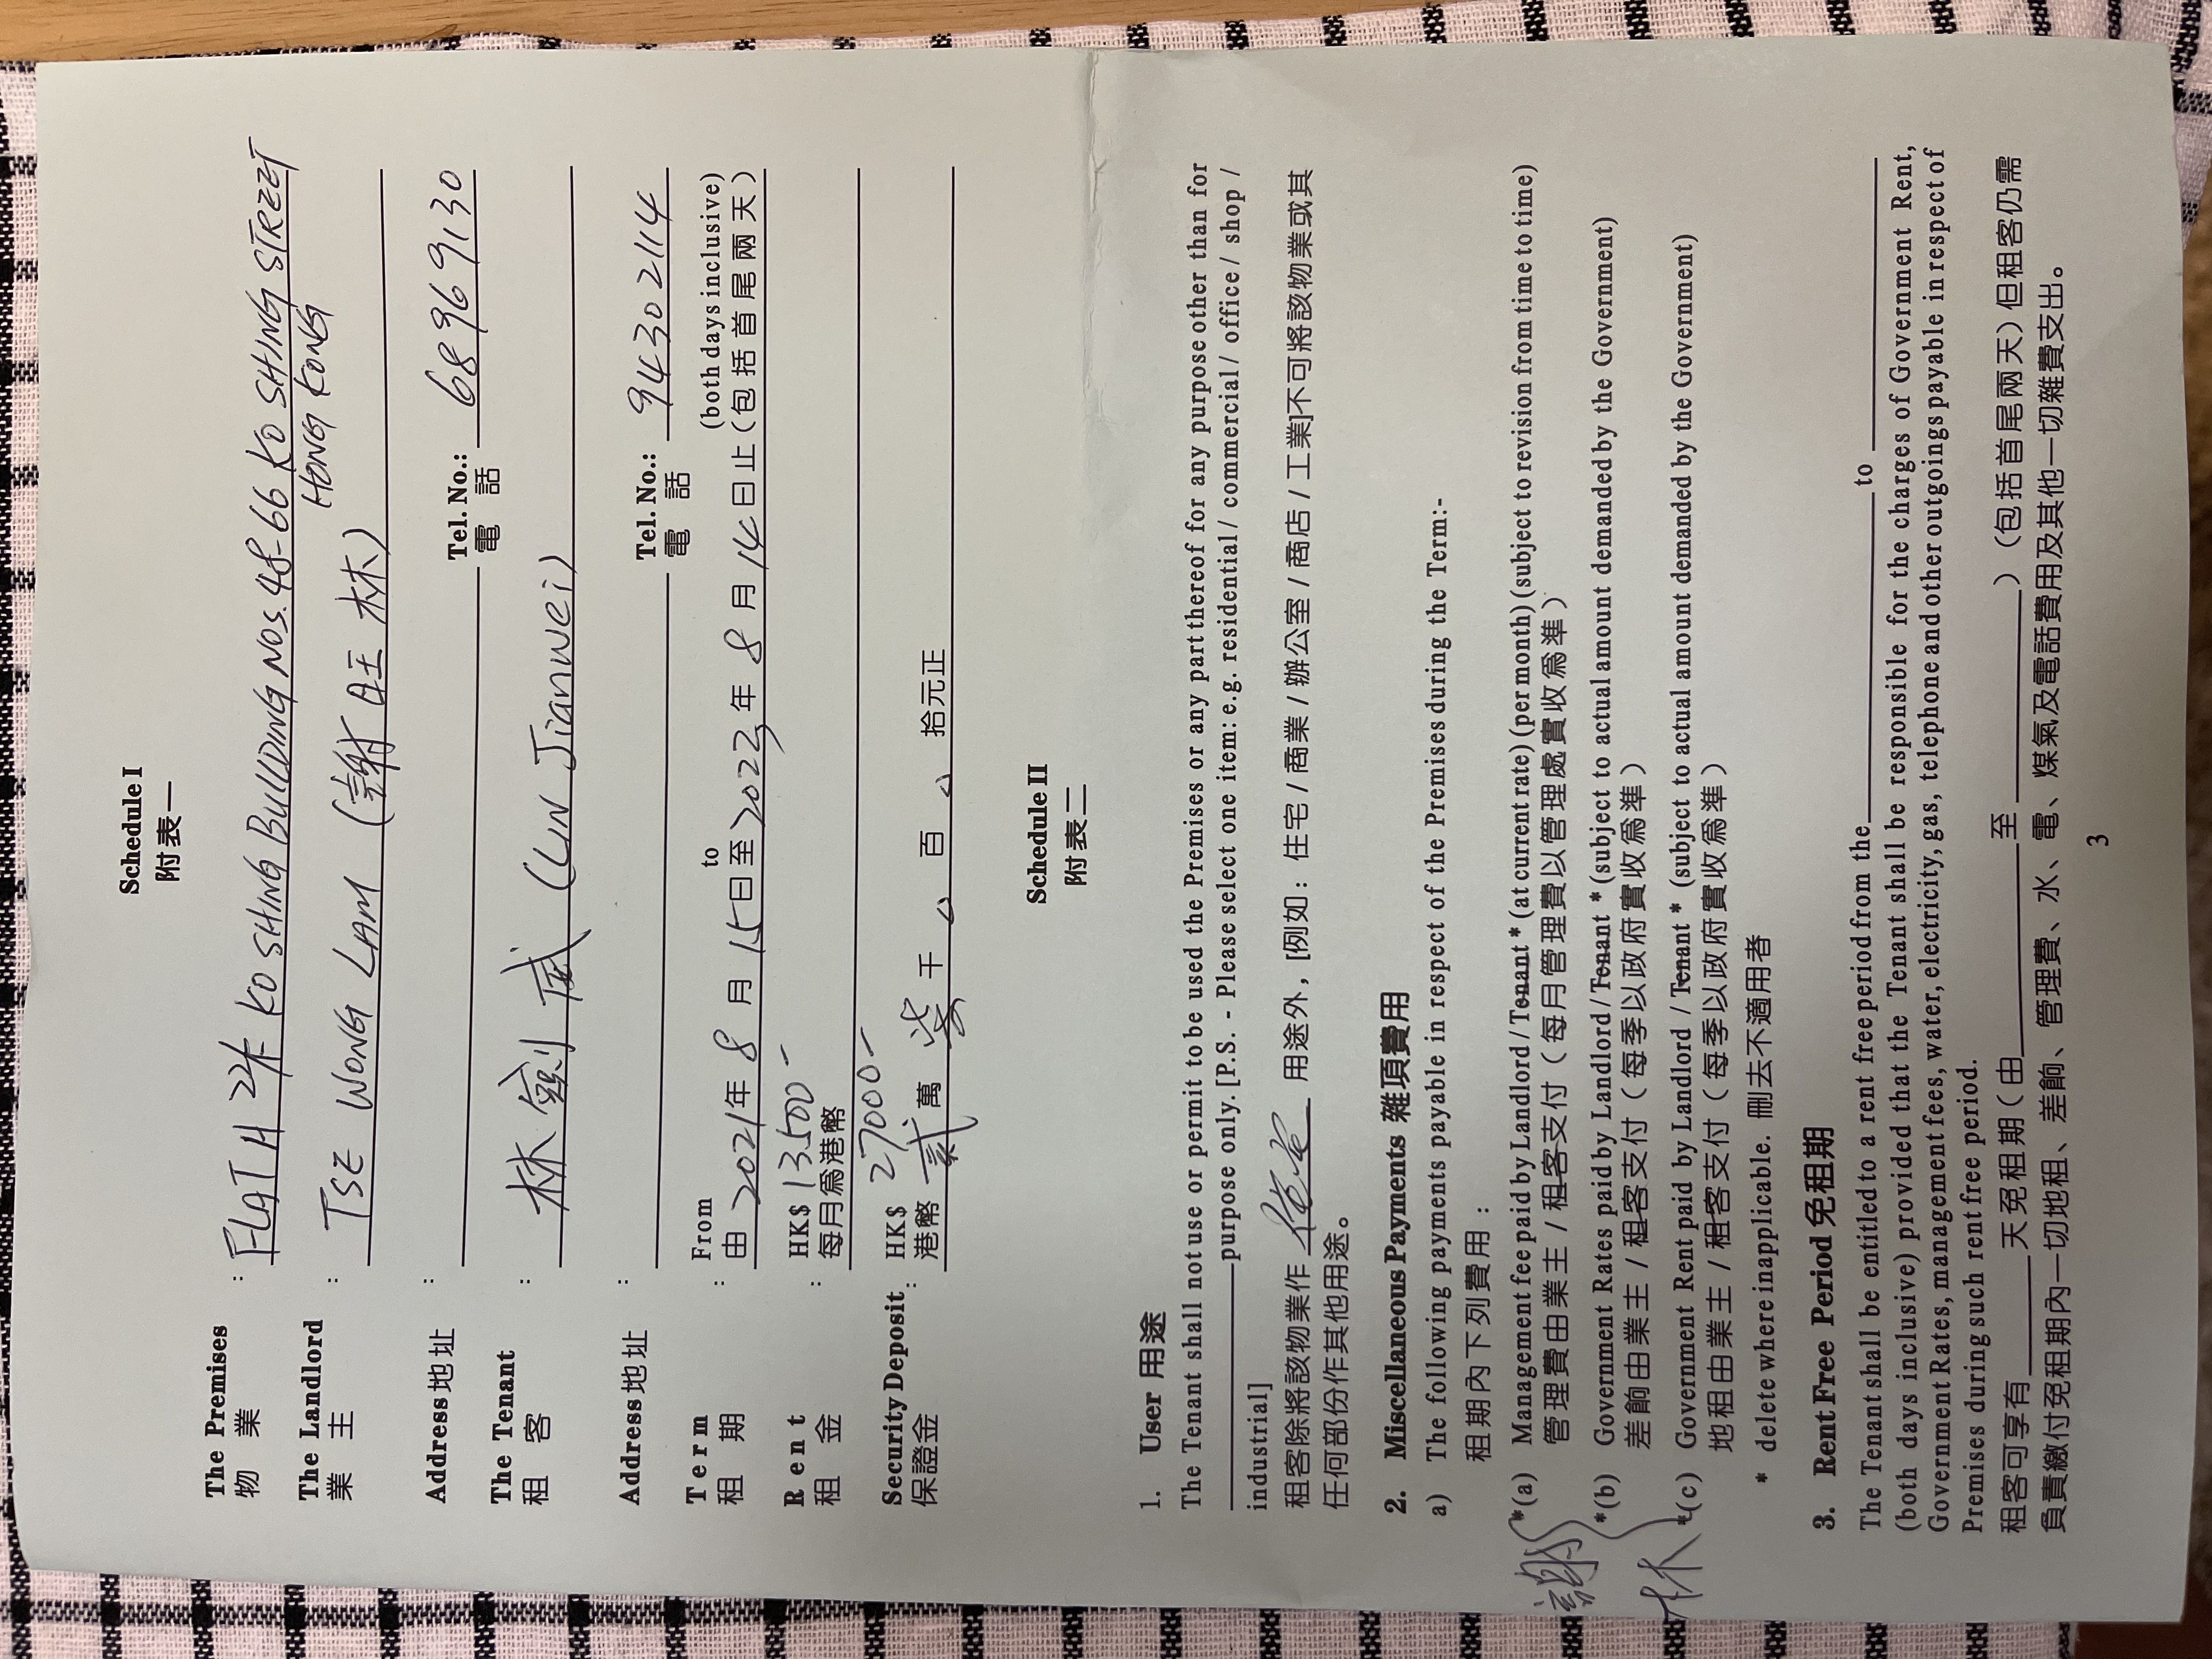 Schedule I
附表一
The Premises : FLAT H 24/F KO SHING BUILDING NOS. 48-66 KO SHING STREET
物 業 HONG KONG
The Landlord : TSE WONG LAM (謝旺林)
業 主
Address地址 : Tel. No.: 68969130
電 話
The Tenant : 林劍威 (LIN Jianwei)
租 客
Address地址 : Tel. No.: 94302114
電 話
Term : From to (both days inclusive)
租 期 由 2021 年 8 月 15 日至 2023 年 8 月 14 日止（包括首尾兩天）
Rent : HK$ 13500-
租 金 每月爲港幣
Security Deposit : HK$ 27000-
保證金 港幣 貳 萬 柒 千 百 拾元正
Schedule II
附表二
1. User 用途
The Tenant shall not use or permit to be used the Premises or any part thereof for any purpose other than for
purpose only. [P.S. - Please select one item: e.g. residential / commercial / office / shop /
industrial]
租客除將該物業作 住宅 用途外，[例如：住宅 / 商業 / 辦公室 / 商店 / 工業]不可將該物業或其
任何部份作其他用途。
2. Miscellaneous Payments 雜項費用
a) The following payments payable in respect of the Premises during the Term:-
租期內下列費用：
*(a) Management fee paid by Landlord / Tenant * (at current rate) (per month) (subject to revision from time to time)
管理費由業主 / 租客支付（每月管理費以管理處實收爲準）
*(b) Government Rates paid by Landlord / Tenant * (subject to actual amount demanded by the Government)
差餉由業主 / 租客支付（每季以政府實收爲準）
*(c) Government Rent paid by Landlord / Tenant * (subject to actual amount demanded by the Government)
地租由業主 / 租客支付（每季以政府實收爲準）
* delete where inapplicable. 刪去不適用者
謝
林
3. Rent Free Period 免租期
The Tenant shall be entitled to a rent free period from the to
(both days inclusive) provided that the Tenant shall be responsible for the charges of Government Rent,
Government Rates, management fees, water, electricity, gas, telephone and other outgoings payable in respect of
Premises during such rent free period.
租客可享有 天免租期（由 至 ）（包括首尾兩天）但租客仍需
負責繳付免租期內一切地租、差餉、管理費、水、電、煤氣及電話費用及其他一切雜費支出。
3